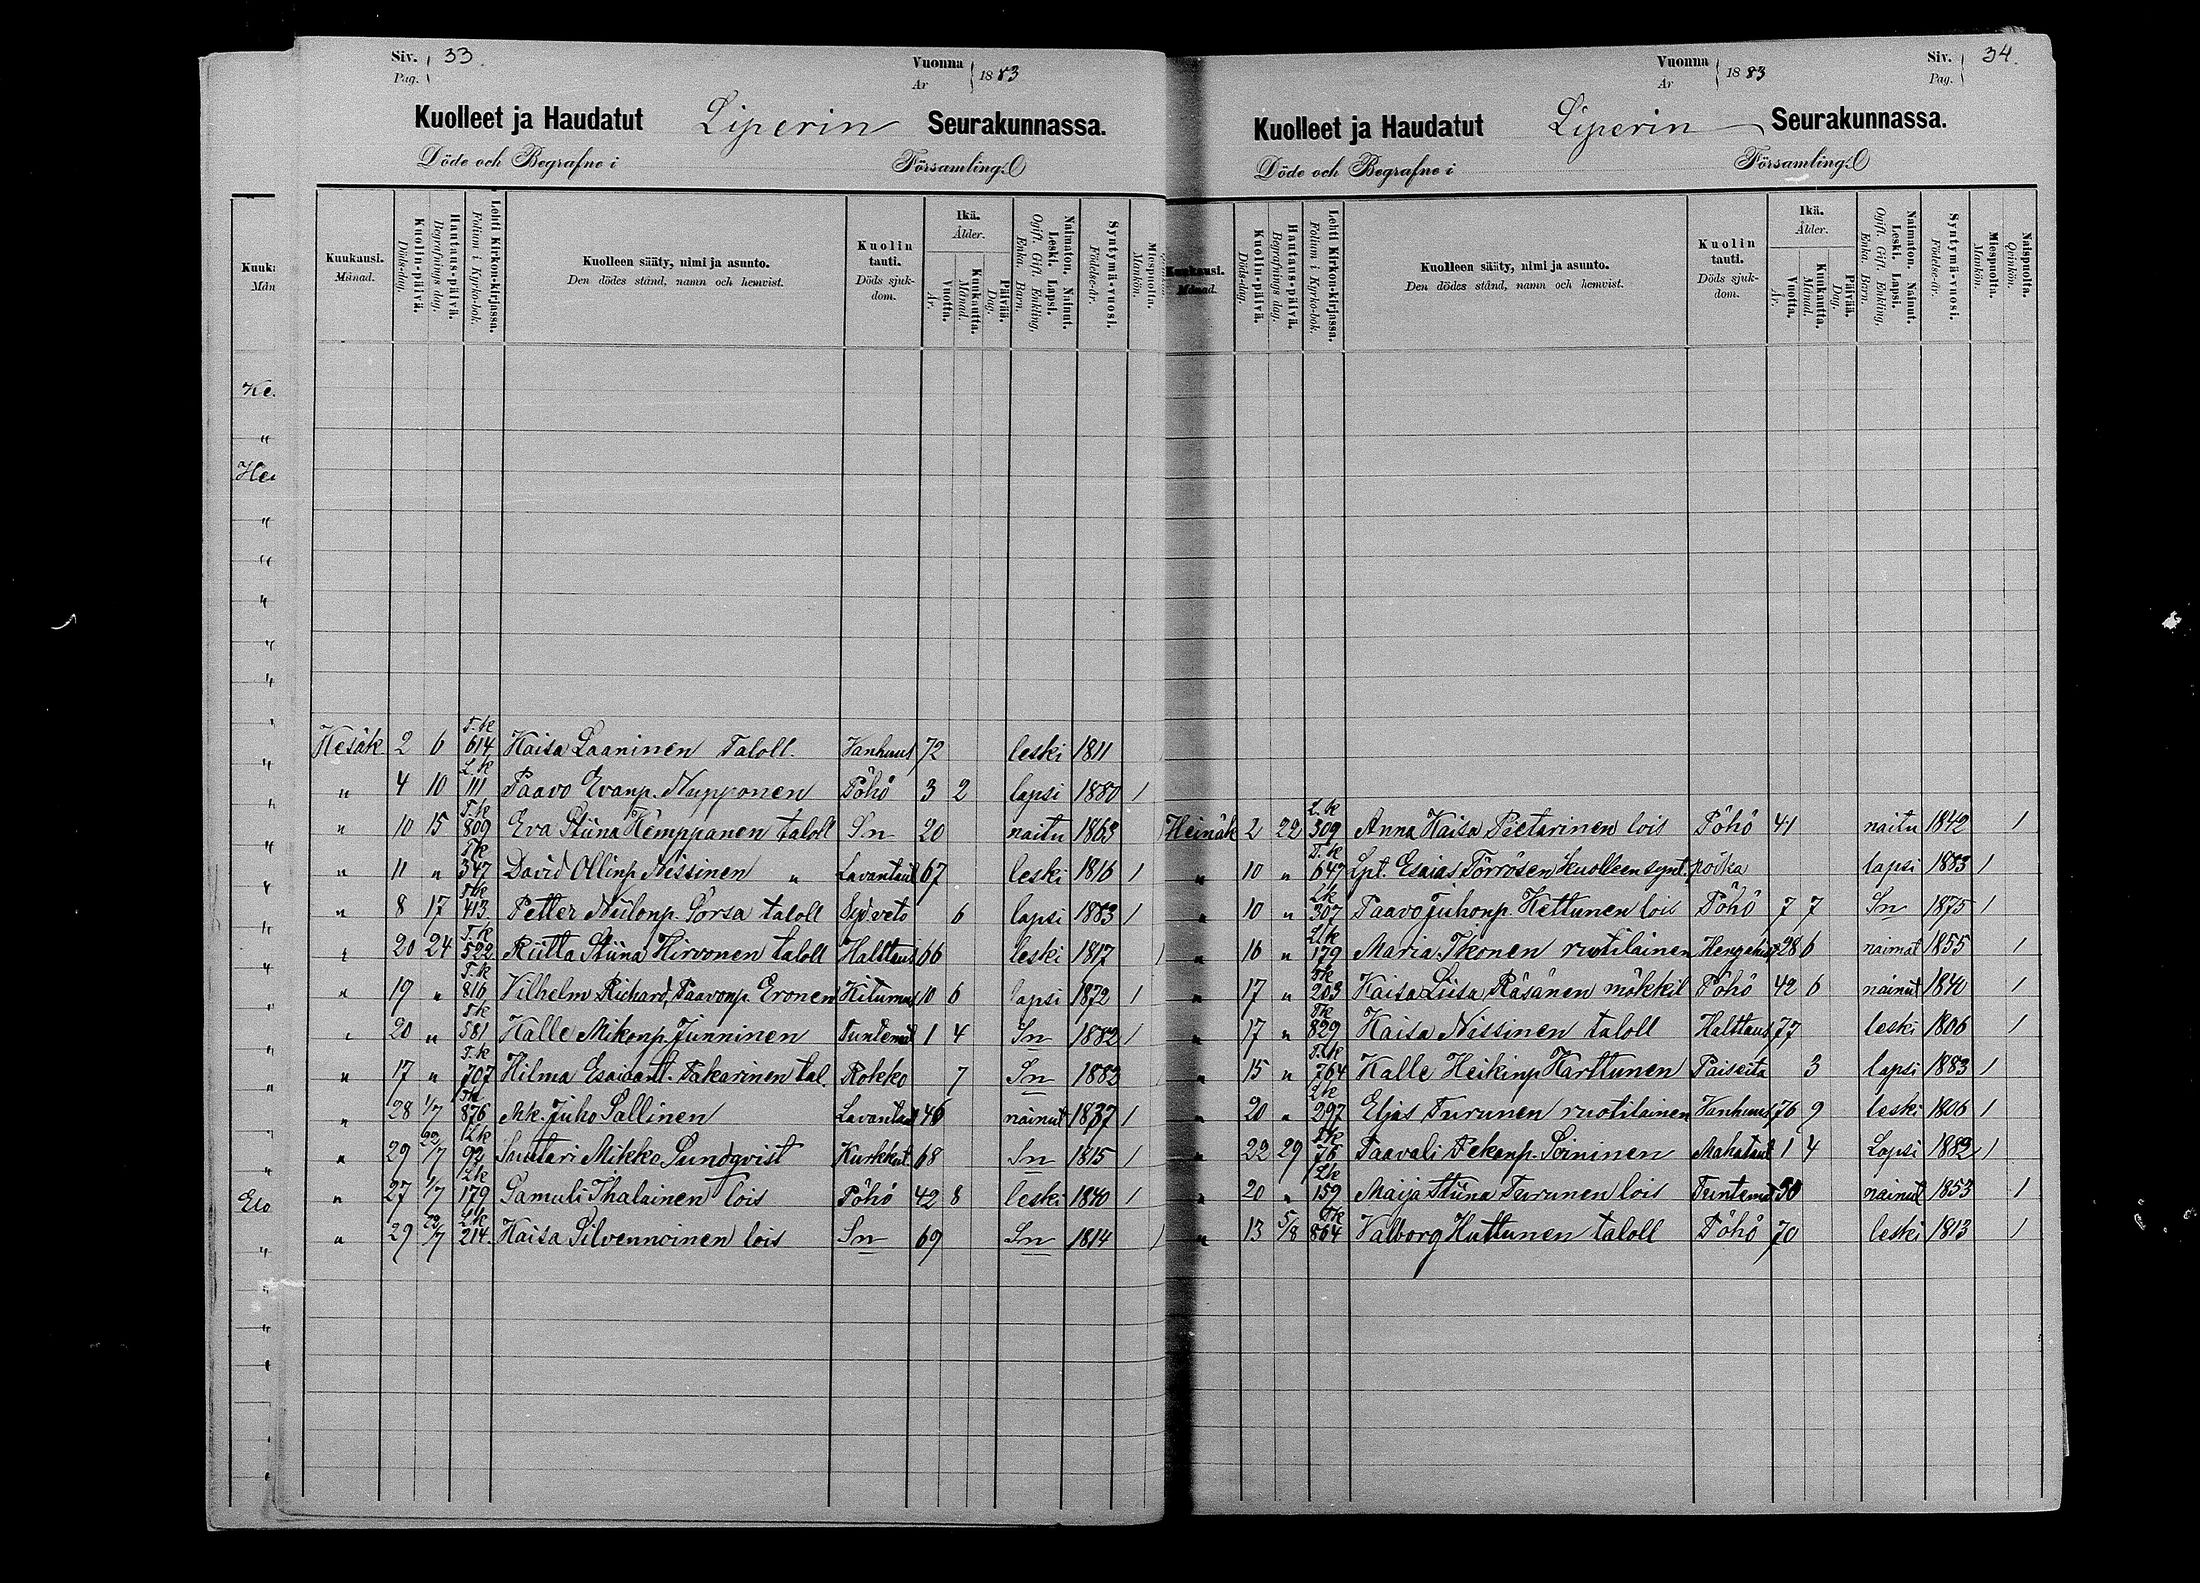 Siv. Pag. 33. Vuonna År 1883
Kuolleet ja Haudatut Liperin Seurakunnassa.
Döde och Begrafne i Församling.
Kuukausi. Månad. Kuolin-päivä. Döds-dag. Hautaus-päivä. Begrafnings dag. Lehti Kirkon-kirjassa. Folium i Kyrko-bok. Kuolleen sääty, nimi ja asunto. Den dödes stånd, namn och hemvist. Kuolin tauti. Döds sjukdom. Ikä. Ålder. Vuotta. År. Kuukautta. Månad. Päivää. Dag. Naimaton. Nainut. Leski. Lapsi. Ogift. Gift. Enkling. Enka. Barn. Syntymä-vuosi. Födelse-år. Miespuolta. Mankön.
Kesäk 2 6 T.k 614 Kaisa Laaninen Taloll. Vanhuus 72 leski 1811
" 4 10 L.k 111 Paavo Evanp. Nupponen Pöhö 3 2 lapsi 1880 1
" 10 15 T.k 809 Eva Stiina Kemppanen taloll Sn 20 naitu 1863
" 11 " Tk 347 David Ollinp Nissinen " Lavantaut 67 leski 1816 1
" 8 17 Tk 413 Petter Niilonp. Sorsa taloll Syd.veto 6 lapsi 1883 1
" 20 24 T.k 522 Riitta Stiina Hirvonen taloll Halttaus 66 leski 1817
" 19 " T.k 816 Vilhelm Richard, Paavonp. Eronen Kitumus 10 6 lapsi 1872 1
" 20 " Tk 581 Kalle Mikonp. Junninen Tuntemat 1 4 Sn 1882 1
" 17 " T.k 707 Hilma Esaiant. Takarinen tal. Rokko 7 Sn 1882
" 28 1/7 Tk 876 Juho Sallinen Lavantaut 46 nainut 1837 1
" 29 22/7 Lk 92 Suutari Mikko Sundqvist Kurkkut 68 Sn 1815 1
" 27 1/7 Lk 179 Samuli Ihalainen lois Pöhö 42 8 leski 1840 1
" 29 22/7 Lk 214 Kaisa Silvennoinen lois Sn 69 Sn 1814
Vuonna År 1883 Siv. Pag. 34.
Kuolleet ja Haudatut Liperin Seurakunnassa.
Döde och Begrafne i Församling.
Kuukausi. Månad. Kuolin-päivä. Döds-dag. Hautaus-päivä. Begrafnings dag. Lehti Kirkon-kirjassa. Folium i Kyrko-bok. Kuolleen sääty, nimi ja asunto. Den dödes stånd, namn och hemvist. Kuolin tauti. Döds sjukdom. Ikä. Ålder. Vuotta. År. Kuukautta. Månad. Päivää. Dag. Naimaton. Nainut. Leski. Lapsi. Ogift. Gift. Enkling. Enka. Barn. Syntymä-vuosi. Födelse-år. Miespuolta. Mankön. Naispuolta. Qvinkön.
Heinäk 2 22 L.k 309 Anna Kaisa Pietarinen lois Pöhö 41 naitu 1842 1
" 10 " T.k 647 Lpt. Esaias Törrösen kuolleen synt. poika lapsi 1883 1
" 10 " Lk 307 Paavo Juhonp. Kettunen lois Pöhö 7 7 Sn 1875 1
" 16 " Lk 179 Maria Ikonen ruotilainen 28 6 naimat 1855 1
" 17 " Tk 203 Kaisa Liisa Räsänen mökkil Pöhö 42 6 nainut 1840 1
" 17 " Tk 829 Kaisa Nissinen taloll Halttaus 77 leski 1806 1
" 15 " T.k 764 Kalle Heikinp Karttunen Paiseita 3 lapsi 1883 1
" 20 " Lk 297 Eljas Turunen ruotilainen Vanhuus 76 9 leski 1806 1
" 22 29 Tk 76 Taavali Pekanp. Soininen Mahataut 1 4 Lapsi 1882 1
" 20 " Lk 159 Maija Stiina Turunen lois Tuntemat 30 nainut 1853 1
" 13 5/8 Tk 864 Valborg Huttunen taloll Pöhö 70 leski 1813 1